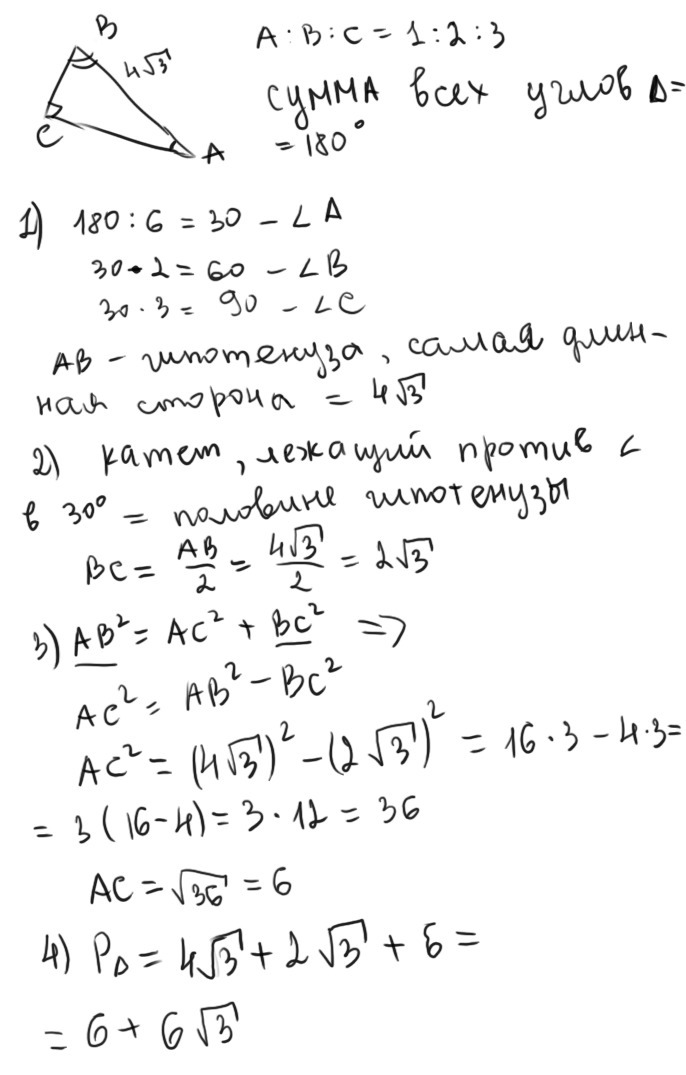 B
4√3
C
A
A : B : C = 1 : 2 : 3
сумма всех углов Δ =
= 180°
1) 180 : 6 = 30 – ∠A
30 · 2 = 60 – ∠B
30 · 3 = 90 – ∠C
AB – гипотенуза, самая длин-
ная сторона = 4√3
2) катет, лежащий против ∠
в 30° = половине гипотенузы
BC = AB/2 = 4√3/2 = 2√3
3) AB² = AC² + BC² =>
AC² = AB² – BC²
AC² = (4√3)² – (2√3)² = 16 · 3 – 4 · 3 =
= 3(16 – 4) = 3 · 12 = 36
AC = √36 = 6
4) PΔ = 4√3 + 2√3 + 6 =
= 6 + 6√3